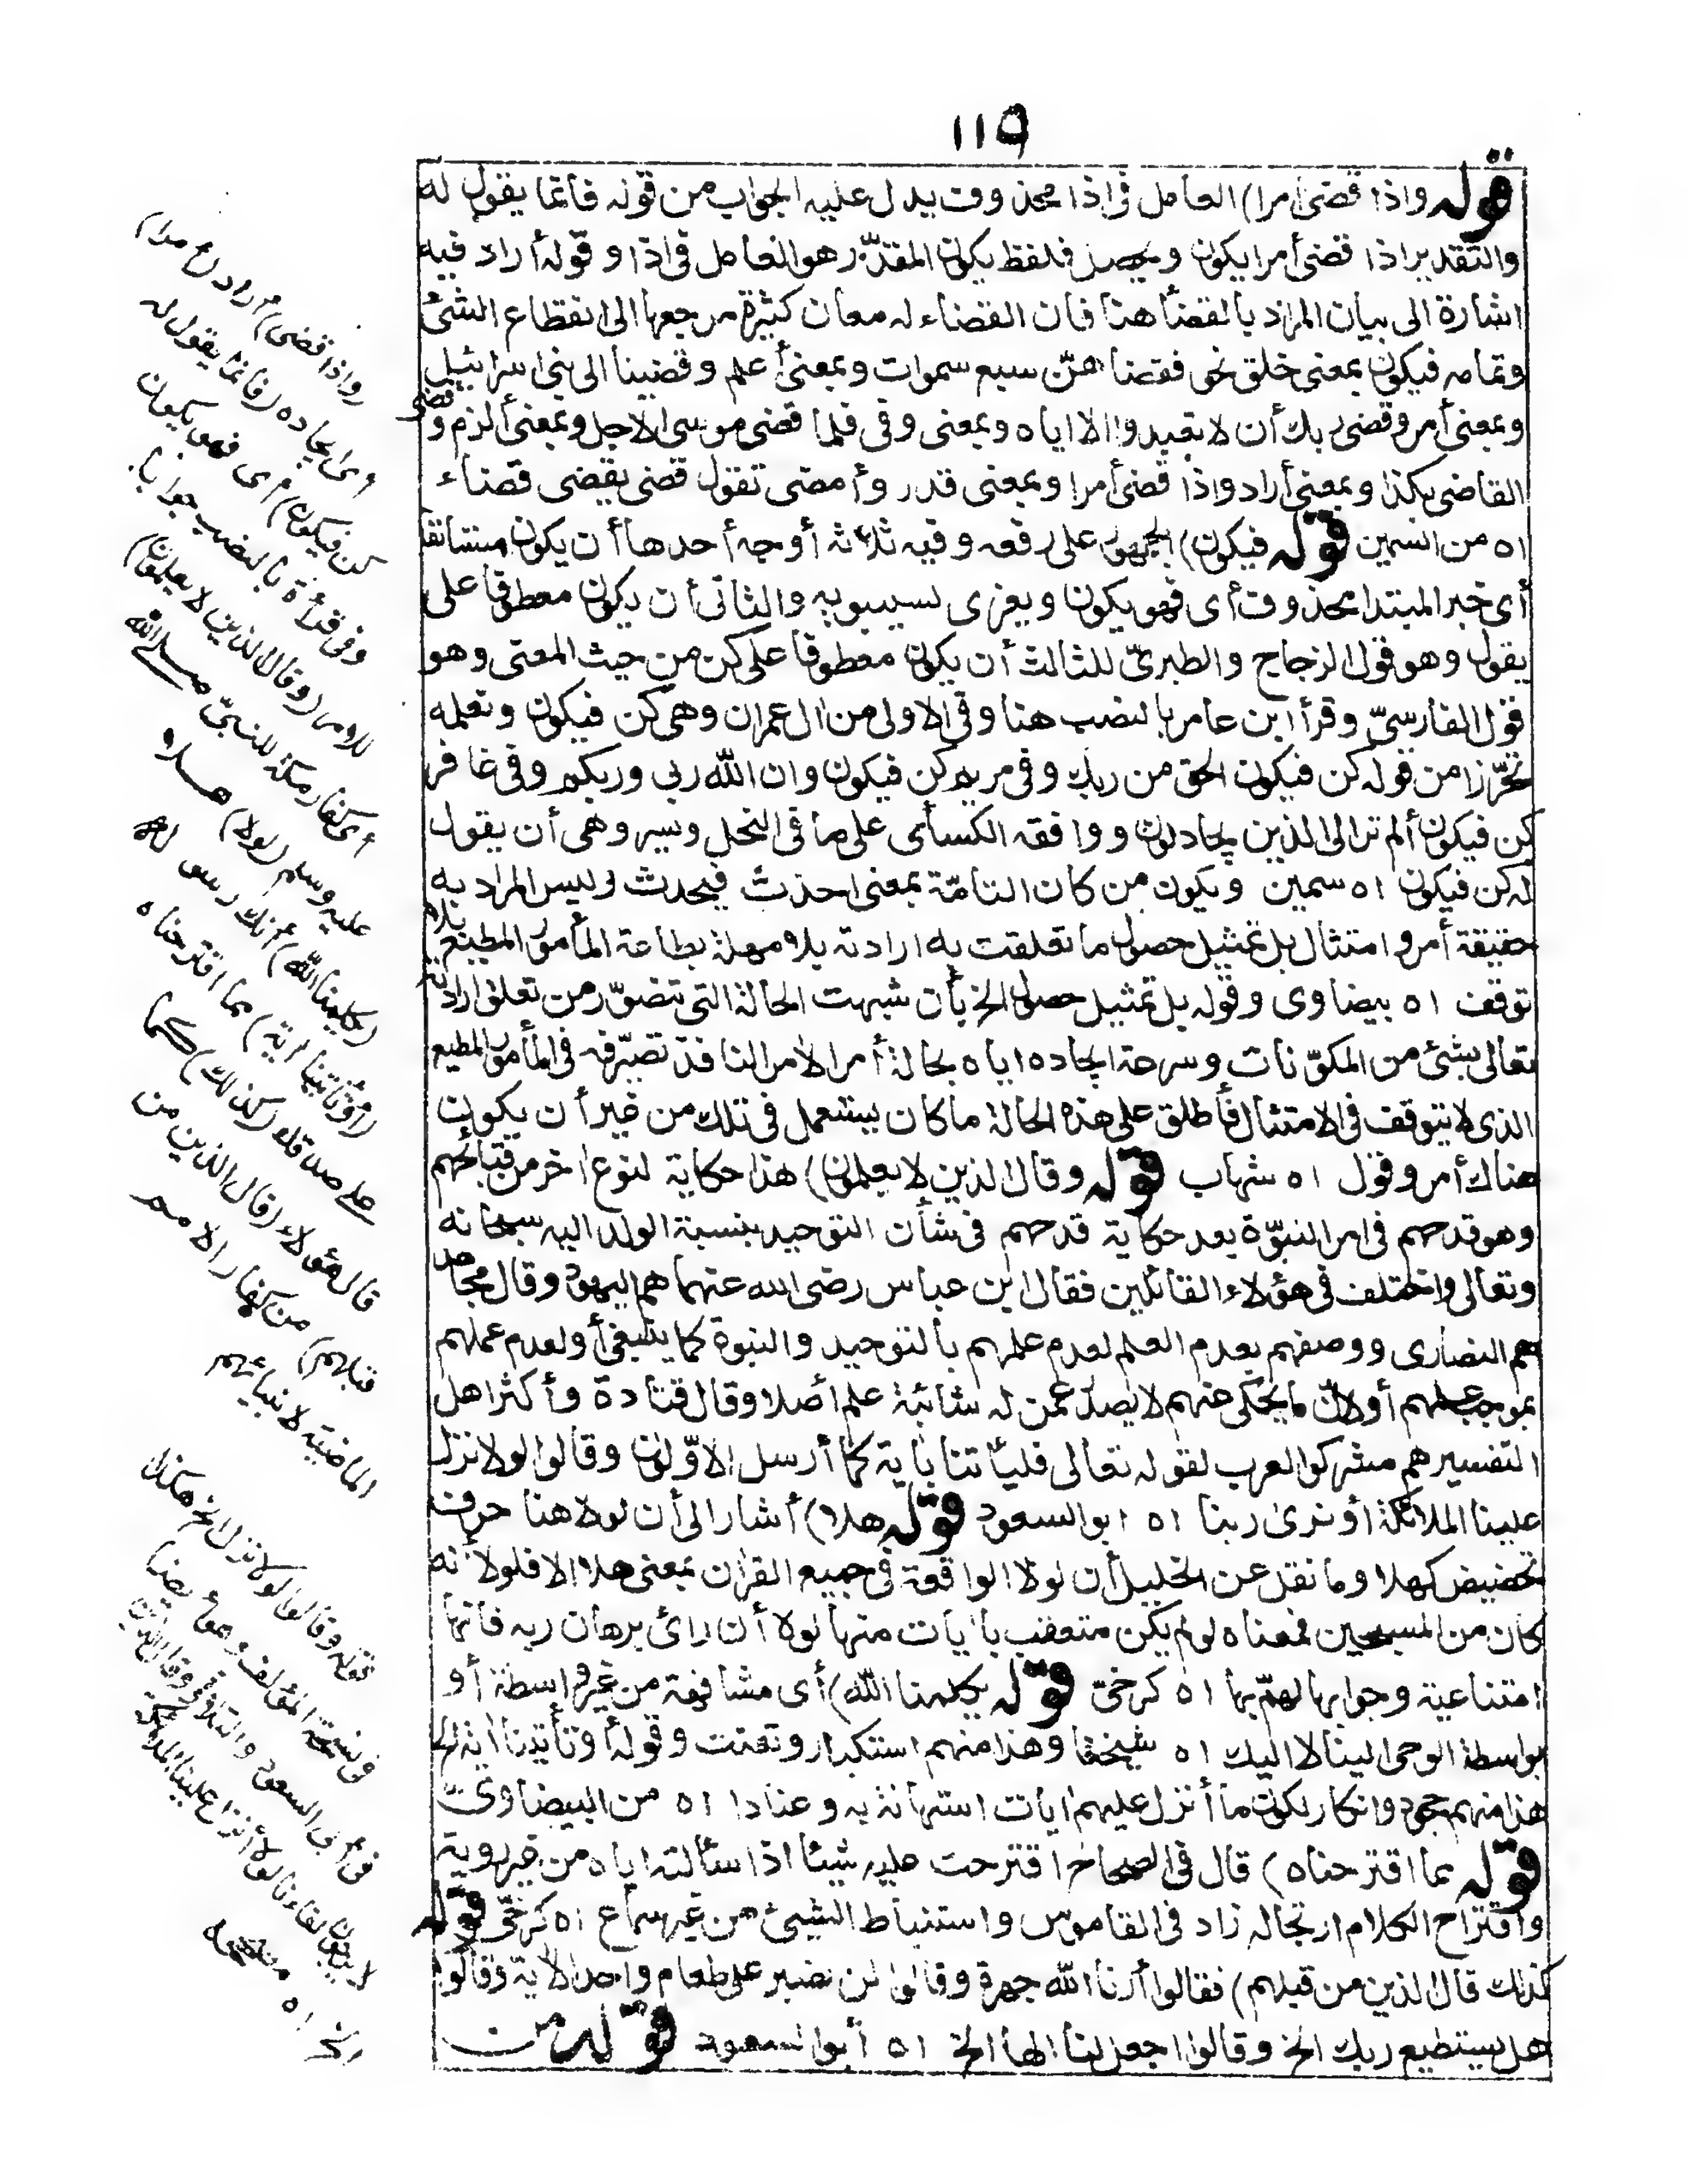 ١١٩
قوله واذا قضى أمرا) العامل في اذا محذوف يدل عليه الجواب من قوله فانما يقول له
والتقدير اذا قضى أمرا يكون ويحصل فلفظ يكون المقدّر هو العامل في اذا وقوله أراد فيه
اشارة الى بيان المراد بالقضأ هنا فان القضاء له معان كثيرة مرجعها الى انقطاع الشئ
وتمامه فيكون بمعنى خلق نحو فقضاهنّ سبع سموات وبمعنى أعلم وقضينا الى بنى اسرائيل
وبمعنى أمر وقضى ربك أن لا تعبدوا الا اياه وبمعنى وفى فلما قضى موسى الاجل وبمعنى ألزم وقضى
القاضى بكذا وبمعنى أراد واذا قضى أمرا وبمعنى قدر وأمضى تقول قضى يقضى قضاء
اه من السمين قوله فيكون) الجمهور على رفعه وفيه ثلاثه أوجه أحدها أن يكون مستأنفا
أى خبر المبتدا محذوف أى فهو يكون ويعزى لسيبويه والثانى أن يكون معطوفا على
يقول وهو قول الزجاج والطبرىّ للثالث أن يكون معطوفا على كن من حيث المعنى وهو
قول الفارسىّ وقرأ ابن عامر بالنصب هنا وفى الاولى من ال عمران وهى كن فيكون ونعلمه
تحرّزا من قوله كن فيكون الحق من ربك وفى مريم كن فيكون وان الله ربى وربكم وفى غافر
كن فيكون ألم تر الى الذين يجادلون ووافقه الكسأى على ما فى النحل ويس وهى أن يقول
له كن فيكون اه سمين ويكون من كان التامّة بمعنى احدث فيحدث وليس المراد به
حقيقة أمر وامتثال بل تمثيل حصول ما تعلقت به ارادته بلا مهلة بطاعة المأمور المطيع بلا
توقف اه بيضاوى وقوله بل تمثيل حصول الخ بأن شبهت الحالة التى تتصوّر من تعلق ارادته
تعالى بشئ من المكوّنات وسرعة ايجاده اياه بحالة أمر الامر النافذ تصرّفه فى المأمور المطيع
الذى لا يتوقف فى الامتثال فأطلق على هذه الحالة ما كان يستعمل فى تلك من غير أن يكون
هناك أمر وقول اه شهاب قوله وقال الذين لا يعلمون) هذا حكاية لنوع اخر من قبائحهم
وهو قدحهم فى امر النبوّة بعد حكاية قدحهم فى شأن التوحيد بنسبة الولد اليه سبحانه
وتعالى واختلف فى هؤلاء القائلين فقال ابن عباس رضى الله عنهما هم اليهود وقال مجاهد
هم النصارى ووصفهم بعدم العلم لعدم علمهم بالتوحيد والنبوة كما ينبغى أو لعدم عملهم
بموجب علمهم أو لانّ ما يحكى عنهم لا يصدر عمن له شائبة علم أصلا وقال قتادة وأكثر اهل
التفسير هم مشركوا العرب لقوله تعالى فليأتنا بأية كما أرسل الاوّلون وقالوا لولا نزل
علينا الملائكة أو نرى ربنا اه ابو السعود قوله هلا) أشار الى أن لولا هنا حرف
تحضيض كهلا وما نقل عن الخليل أن لولا الواقعة فى جميع القرأن بمعنى هلا الا فلولا أنه
كان من المسبحين فمعناه لو لم يكن متعقب بأيات منها لولا أن رائ برهان ربه فانها
امتناعية وجوابها لهمّ بها اه كرخى قوله يكلمنا الله) أى مشافهة من غير واسطة أو
بواسطة الوحى الينا لا اليك اه شيخنا وهذا منهم استكبار وتعنت وقوله أو تأتينا أية الخ
هذا منهم جحود وانكار لكون ما أنزل عليهم ايات استهانة به وعنادا اه من البيضاوىّ
قوله مما اقترحناه) قال فى الصحاح اقترحت عليه شيئا اذا سألته اياه من غير روية
واقتراح الكلام ارتجاله زاد فى القاموس واستنباط الشيئ من غير سماع اه كرخىّ قوله
كذلك قال الذين من قبلهم) فقالوا أرنا الله جهرة وقالوا لن نصبر على طعام واحد الأية وقالوا
هل يستطيع ربك الخ وقالوا اجعل لنا الها الخ اه أبو السعود قوله من
(واذا قضى) أراد (أمرا)
أى ايجاده (فانما يقول له
كن فيكون) أى فهو يكون
وفى قرأة بالنصب جوابا
للامر (وقال الذين لا يعلمون)
أى كفار مكة للنبىّ صلى الله
عليه وسلم (لولا) هلا
(يكلمنا الله) أنك رسوله
(أو تأتينا أية) مما اقترحناه
على صدقك (كذلك) كما
قال هؤلاء (قال الذين من
قبلهم) من كفار الامم
الماضية لانبيائهم
قوله وقالوا لولا نزل الخ هكذا
فى نسخة المؤلف وهو أيضا
فى أبى السعود والتلاوة وقال الذين
لا يرجون لقاءنا لولا أنزل علينا الملائكة
الخ اه